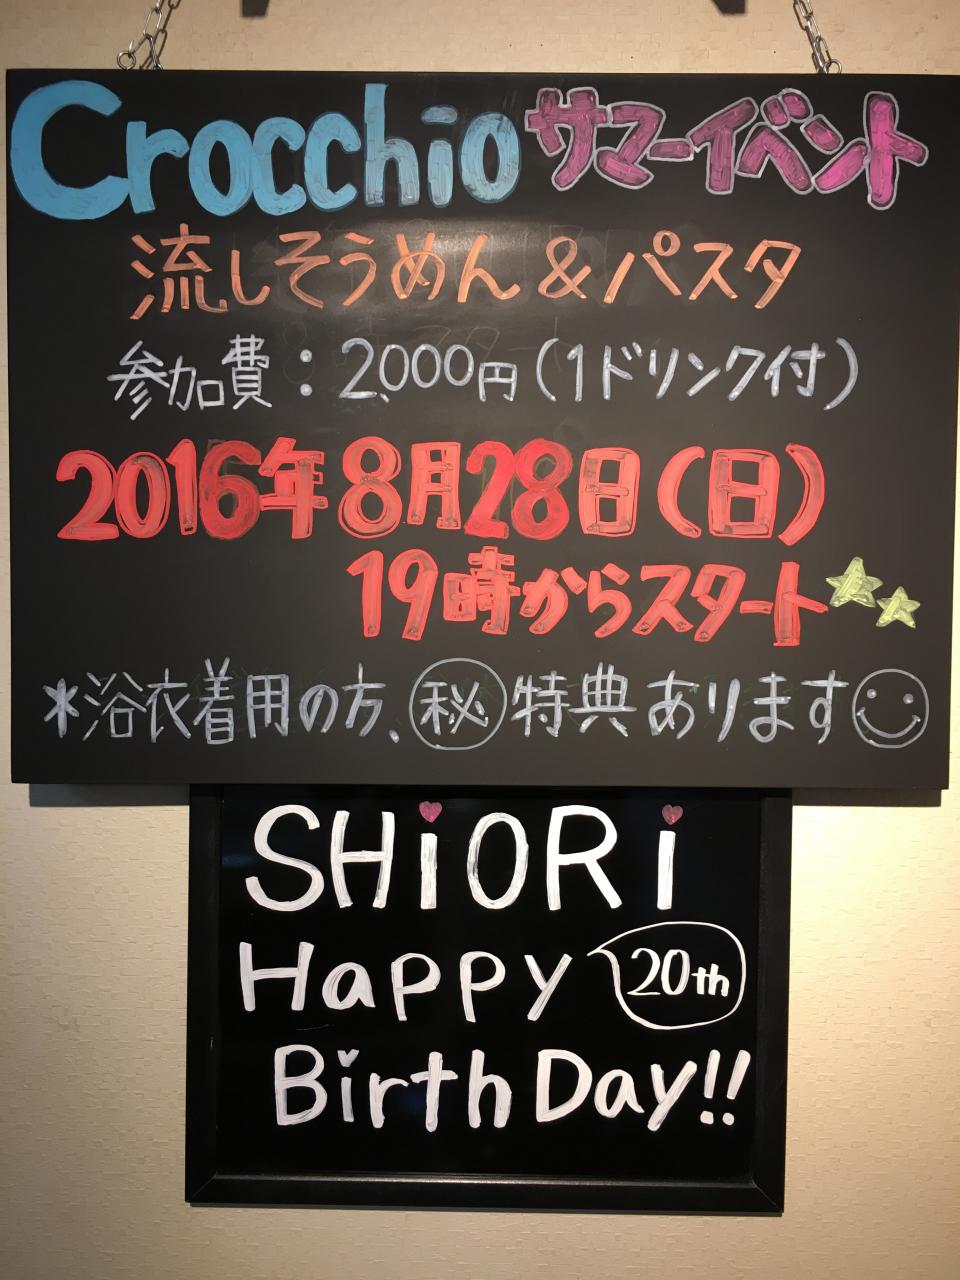 Crocchio サマーイベント
流しそうめん＆パスタ
参加費：2,000円（1ドリンク付）
2016年8月28日（日）
19時からスタート
*浴衣着用の方、㊙特典あります
SHiORi
Happy 20th
BirthDay!!